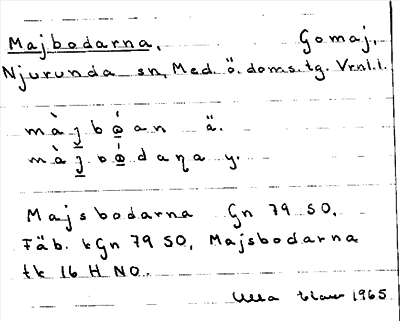 Majbodarna. Gomaj.
Njurunda sn, Med. ö. doms. tg. Vrnl.l.
màj̲bó̲an ä.
màj̲bó̲daṇa y.
Majsbodarna Gn 79 SO.
Fäb. tGn 79 SO, Majsbodarna
tk 16 H NO.
Ulla 1965